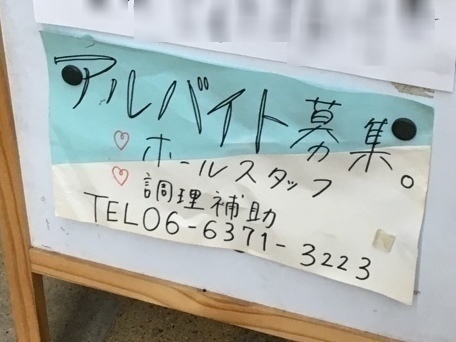 アルバイト募集。
♡ ホールスタッフ
♡ 調理補助
TEL06-6371-3223